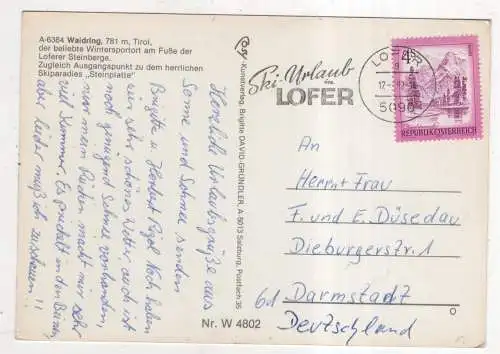 A-6384 Waidring, 781 m, Tirol,
der beliebte Wintersportort am Fuße der
Loferer Steinberge.
Zugleich Ausgangspunkt zu dem herrlichen
Skiparadies „Steinplatte"
Herzliche Urlaubsgrüße aus
Sonne und Schnee senden
Brigitte u. Herbert Noch haben
wir sehr schönes Wetter, auch ist
noch genügend Schnee vorhanden,
nur mein Rücken macht mir sehr
viel Kummer. Es in den
aber leider muß ich zuschauen!!
Kunstverlag, Brigitte DAVID-GRÜNDLER, A-5013 Salzburg, Postfach 35
Nr. W 4802
Ski-Urlaub
in
LOFER
LOFER
5090
4
REPUBLIK ÖSTERREICH
An
Herrn + Frau
F. und E. Düsedau
Dieburgerstr.
61 Darmstadt
Deutschland